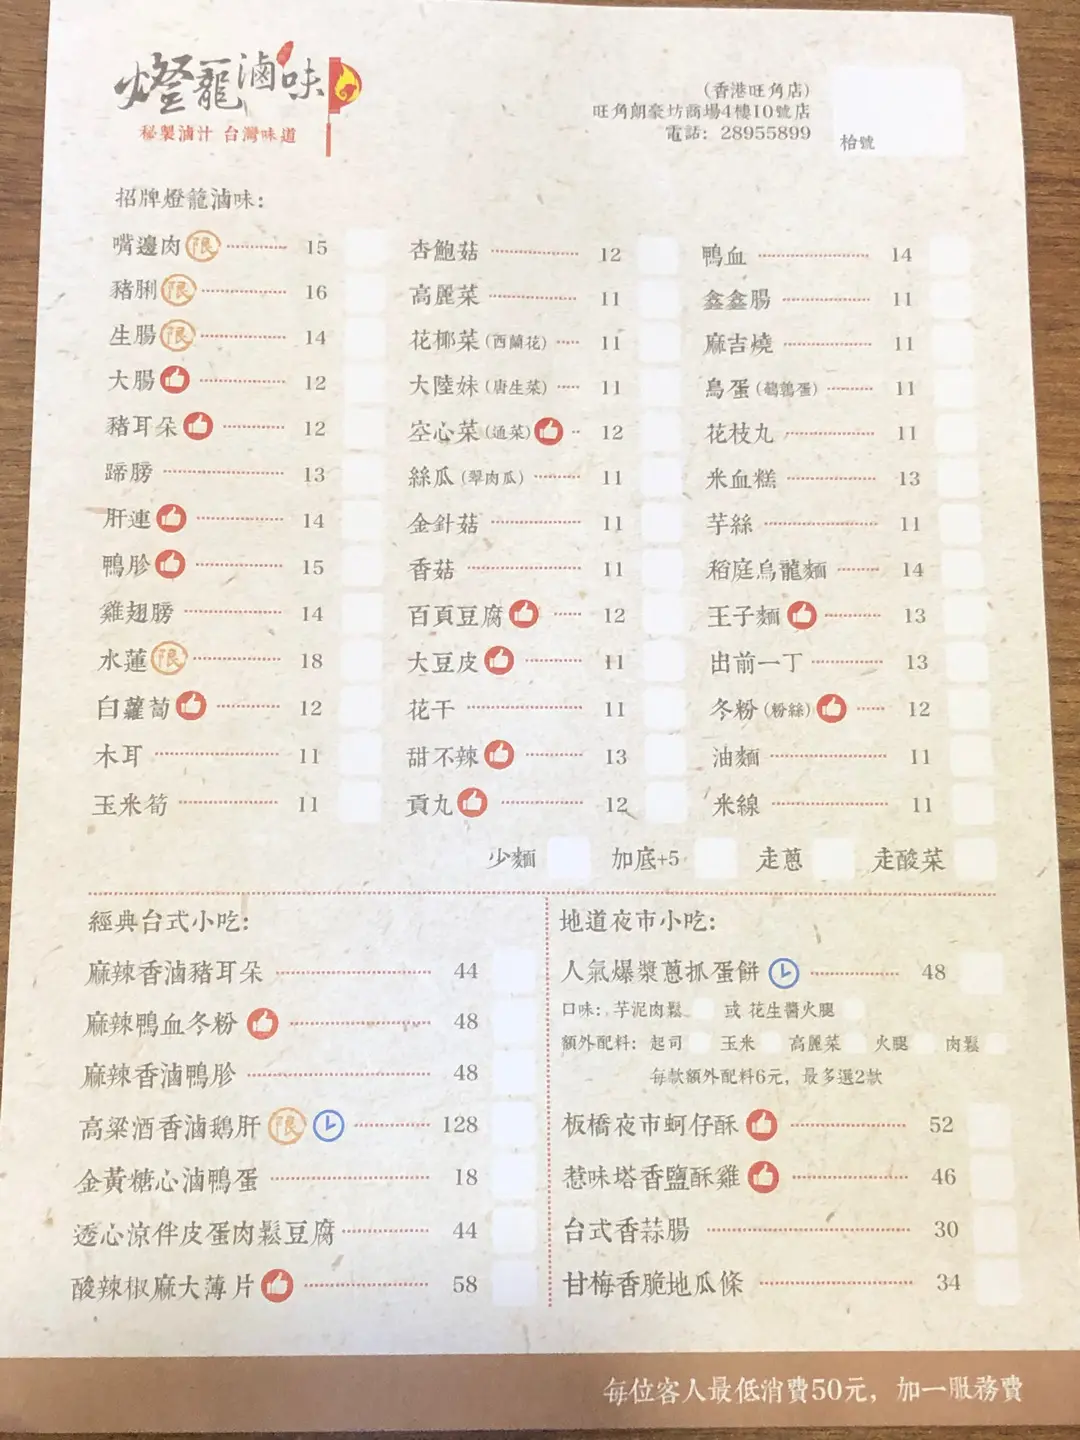 燈籠滷味
秘製滷汁 台灣味道
(香港旺角店)
旺角朗豪坊商場4樓10號店
電話: 28955899
枱號
招牌燈籠滷味:
嘴邊肉 限 15
豬脷 限 16
生腸 限 14
大腸 12
豬耳朵 12
蹄膀 13
肝連 14
鴨胗 15
雞翅膀 14
水蓮 限 18
白蘿蔔 12
木耳 11
玉米筍 11
杏鮑菇 12
高麗菜 11
花椰菜 (西蘭花) 11
大陸妹 (唐生菜) 11
空心菜 (通菜) 12
絲瓜 (翠肉瓜) 11
金針菇 11
香菇 11
百頁豆腐 12
大豆皮 11
花干 11
甜不辣 13
貢丸 12
鴨血 14
鑫鑫腸 11
麻吉燒 11
鳥蛋 (鵪鶉蛋) 11
花枝丸 11
米血糕 13
芋絲 11
稻庭烏龍麵 14
王子麵 13
出前一丁 13
冬粉 (粉絲) 12
油麵 11
米線 11
少麵 加底+5 走蔥 走酸菜
經典台式小吃:
麻辣香滷豬耳朵 44
麻辣鴨血冬粉 48
麻辣香滷鴨胗 48
高粱酒香滷鵝肝 限 128
金黃糖心滷鴨蛋 18
透心涼伴皮蛋肉鬆豆腐 44
酸辣椒麻大薄片 58
地道夜市小吃:
人氣爆漿蔥抓蛋餅 48
口味: 芋泥肉鬆 或 花生醬火腿
額外配料: 起司 玉米 高麗菜 火腿 肉鬆
每款額外配料6元, 最多選2款
板橋夜市蚵仔酥 52
惹味塔香鹽酥雞 46
台式香蒜腸 30
甘梅香脆地瓜條 34
每位客人最低消費50元, 加一服務費